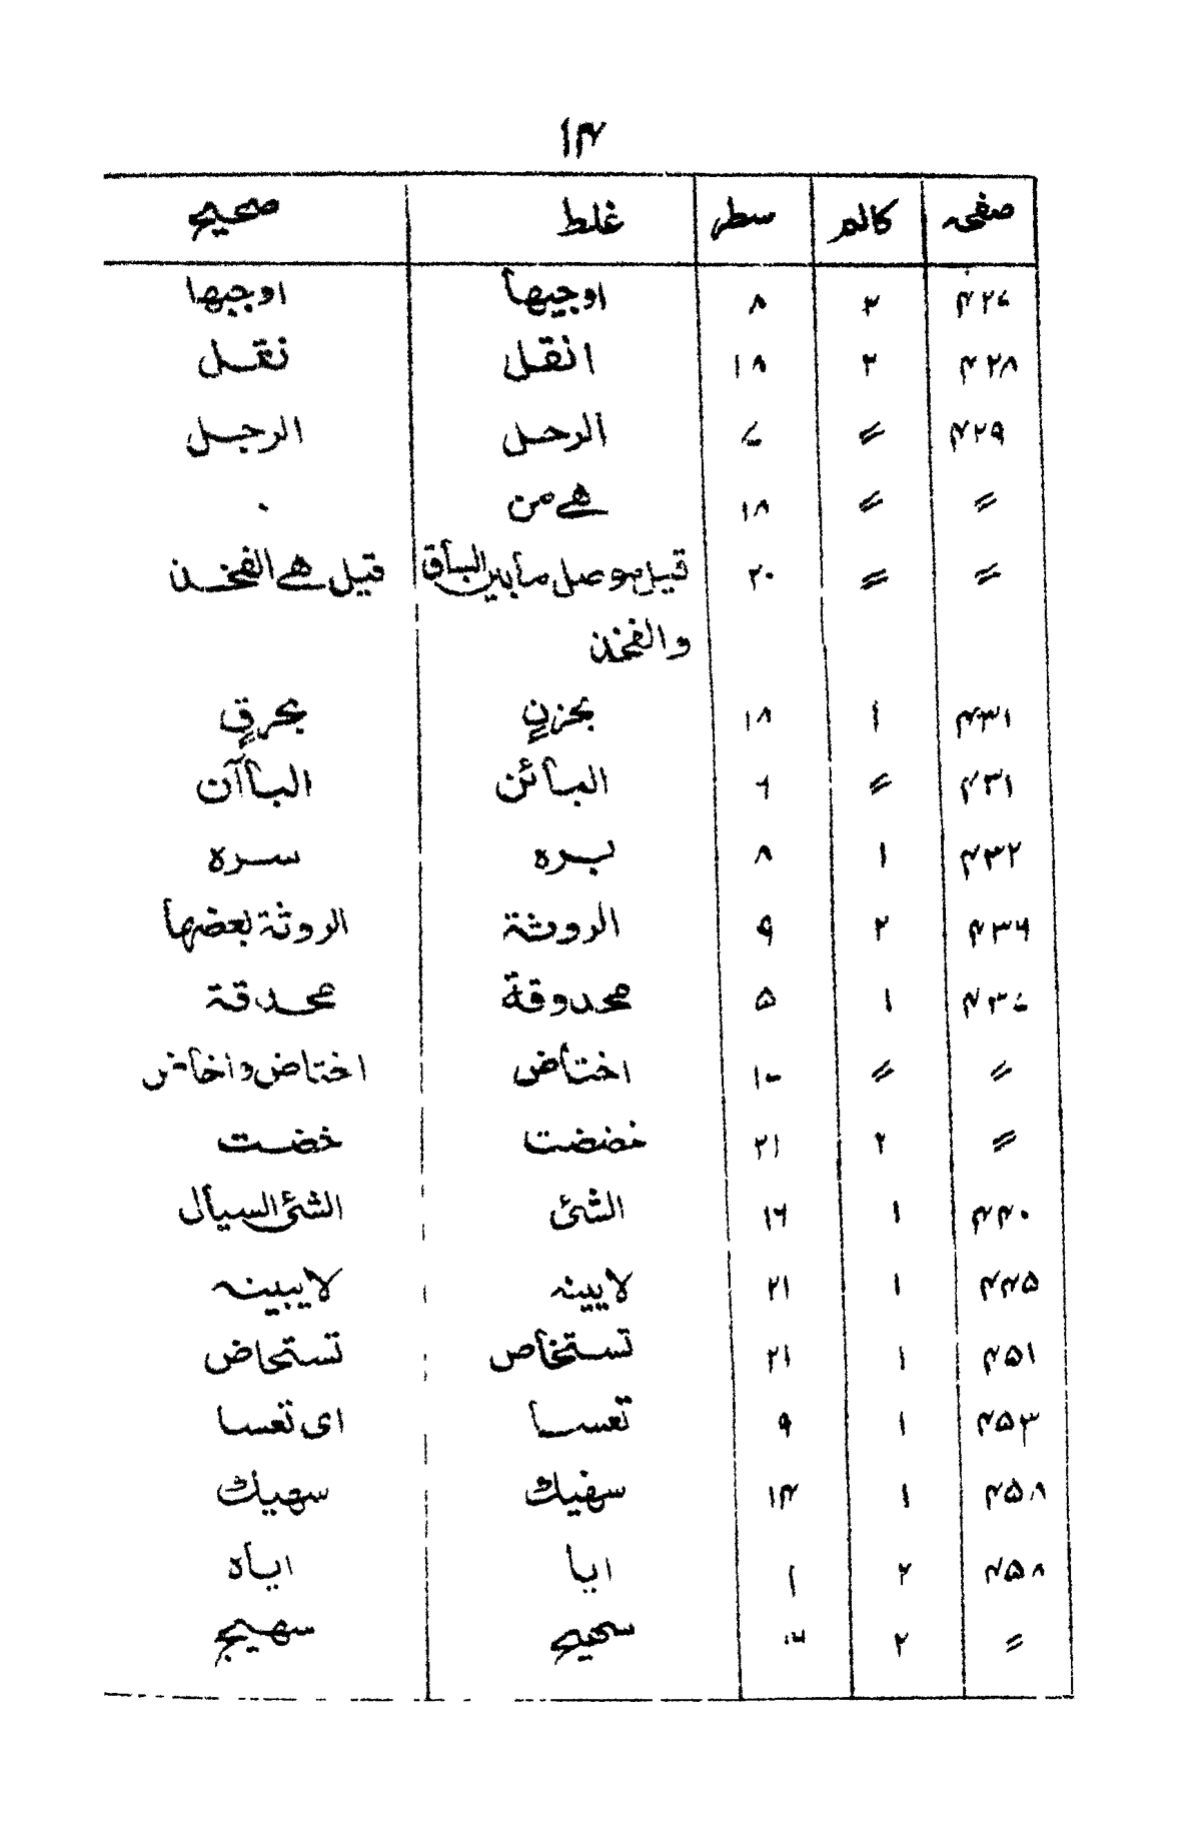 ۱۴
صفحہ کالم سطر غلط صحیح
۴۲۷ ۲ ۸ اوجیھا اوجبھا
۴۲۸ ۲ ۱۸ انقل نقل
۴۲۹ 〃 ۷ الرحل الرجل
〃 〃 ۱۸ ھے من ۰
〃 〃 ۲۰ قیل موصل مابین الساق قیل ھے الفخذ
والفخذ
۴۳۱ ۱ ۱۸ بحزنٍ بحرقٍ
۴۳۱ 〃 ۶ البائن الباآن
۴۳۲ ۱ ۸ برہ سرہ
۴۳۶ ۲ ۹ الروثة الروثة بعضھا
۴۳۷ ۱ ۵ محدوقة محدقة
〃 〃 ۱۰ اختاض اختاض واخاض
〃 ۲ ۲۱ خضضت خضت
۴۴۰ ۱ ۱۶ الشئ الشئ السیال
۴۴۵ ۱ ۲۱ لایینہ لایبینہ
۴۵۱ ۱ ۲۱ تستخاص تستحاض
۴۵۳ ۱ ۹ تعسا ای تعسا
۴۵۸ ۱ ۱۴ سھفیك سھیك
۴۵۸ ۲ ۱ ایا ایاہ
〃 ۲ سحیج سھیج